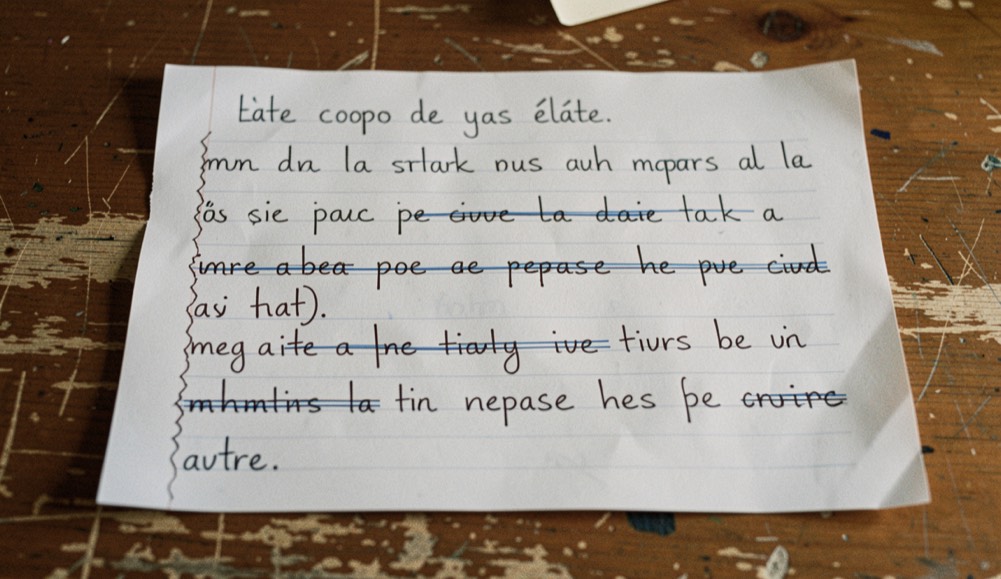 tàte coopo de yas éláte.
mm dn la srlark nus auh mapars al la
äs sie pauc pe civve la daie tak a
imre a bea poe ae pepase he pve ciud
hat).
meg aite a tiarly ive tiurs be un
mhmtins la tin nepase hes pe cnvire
avtre.